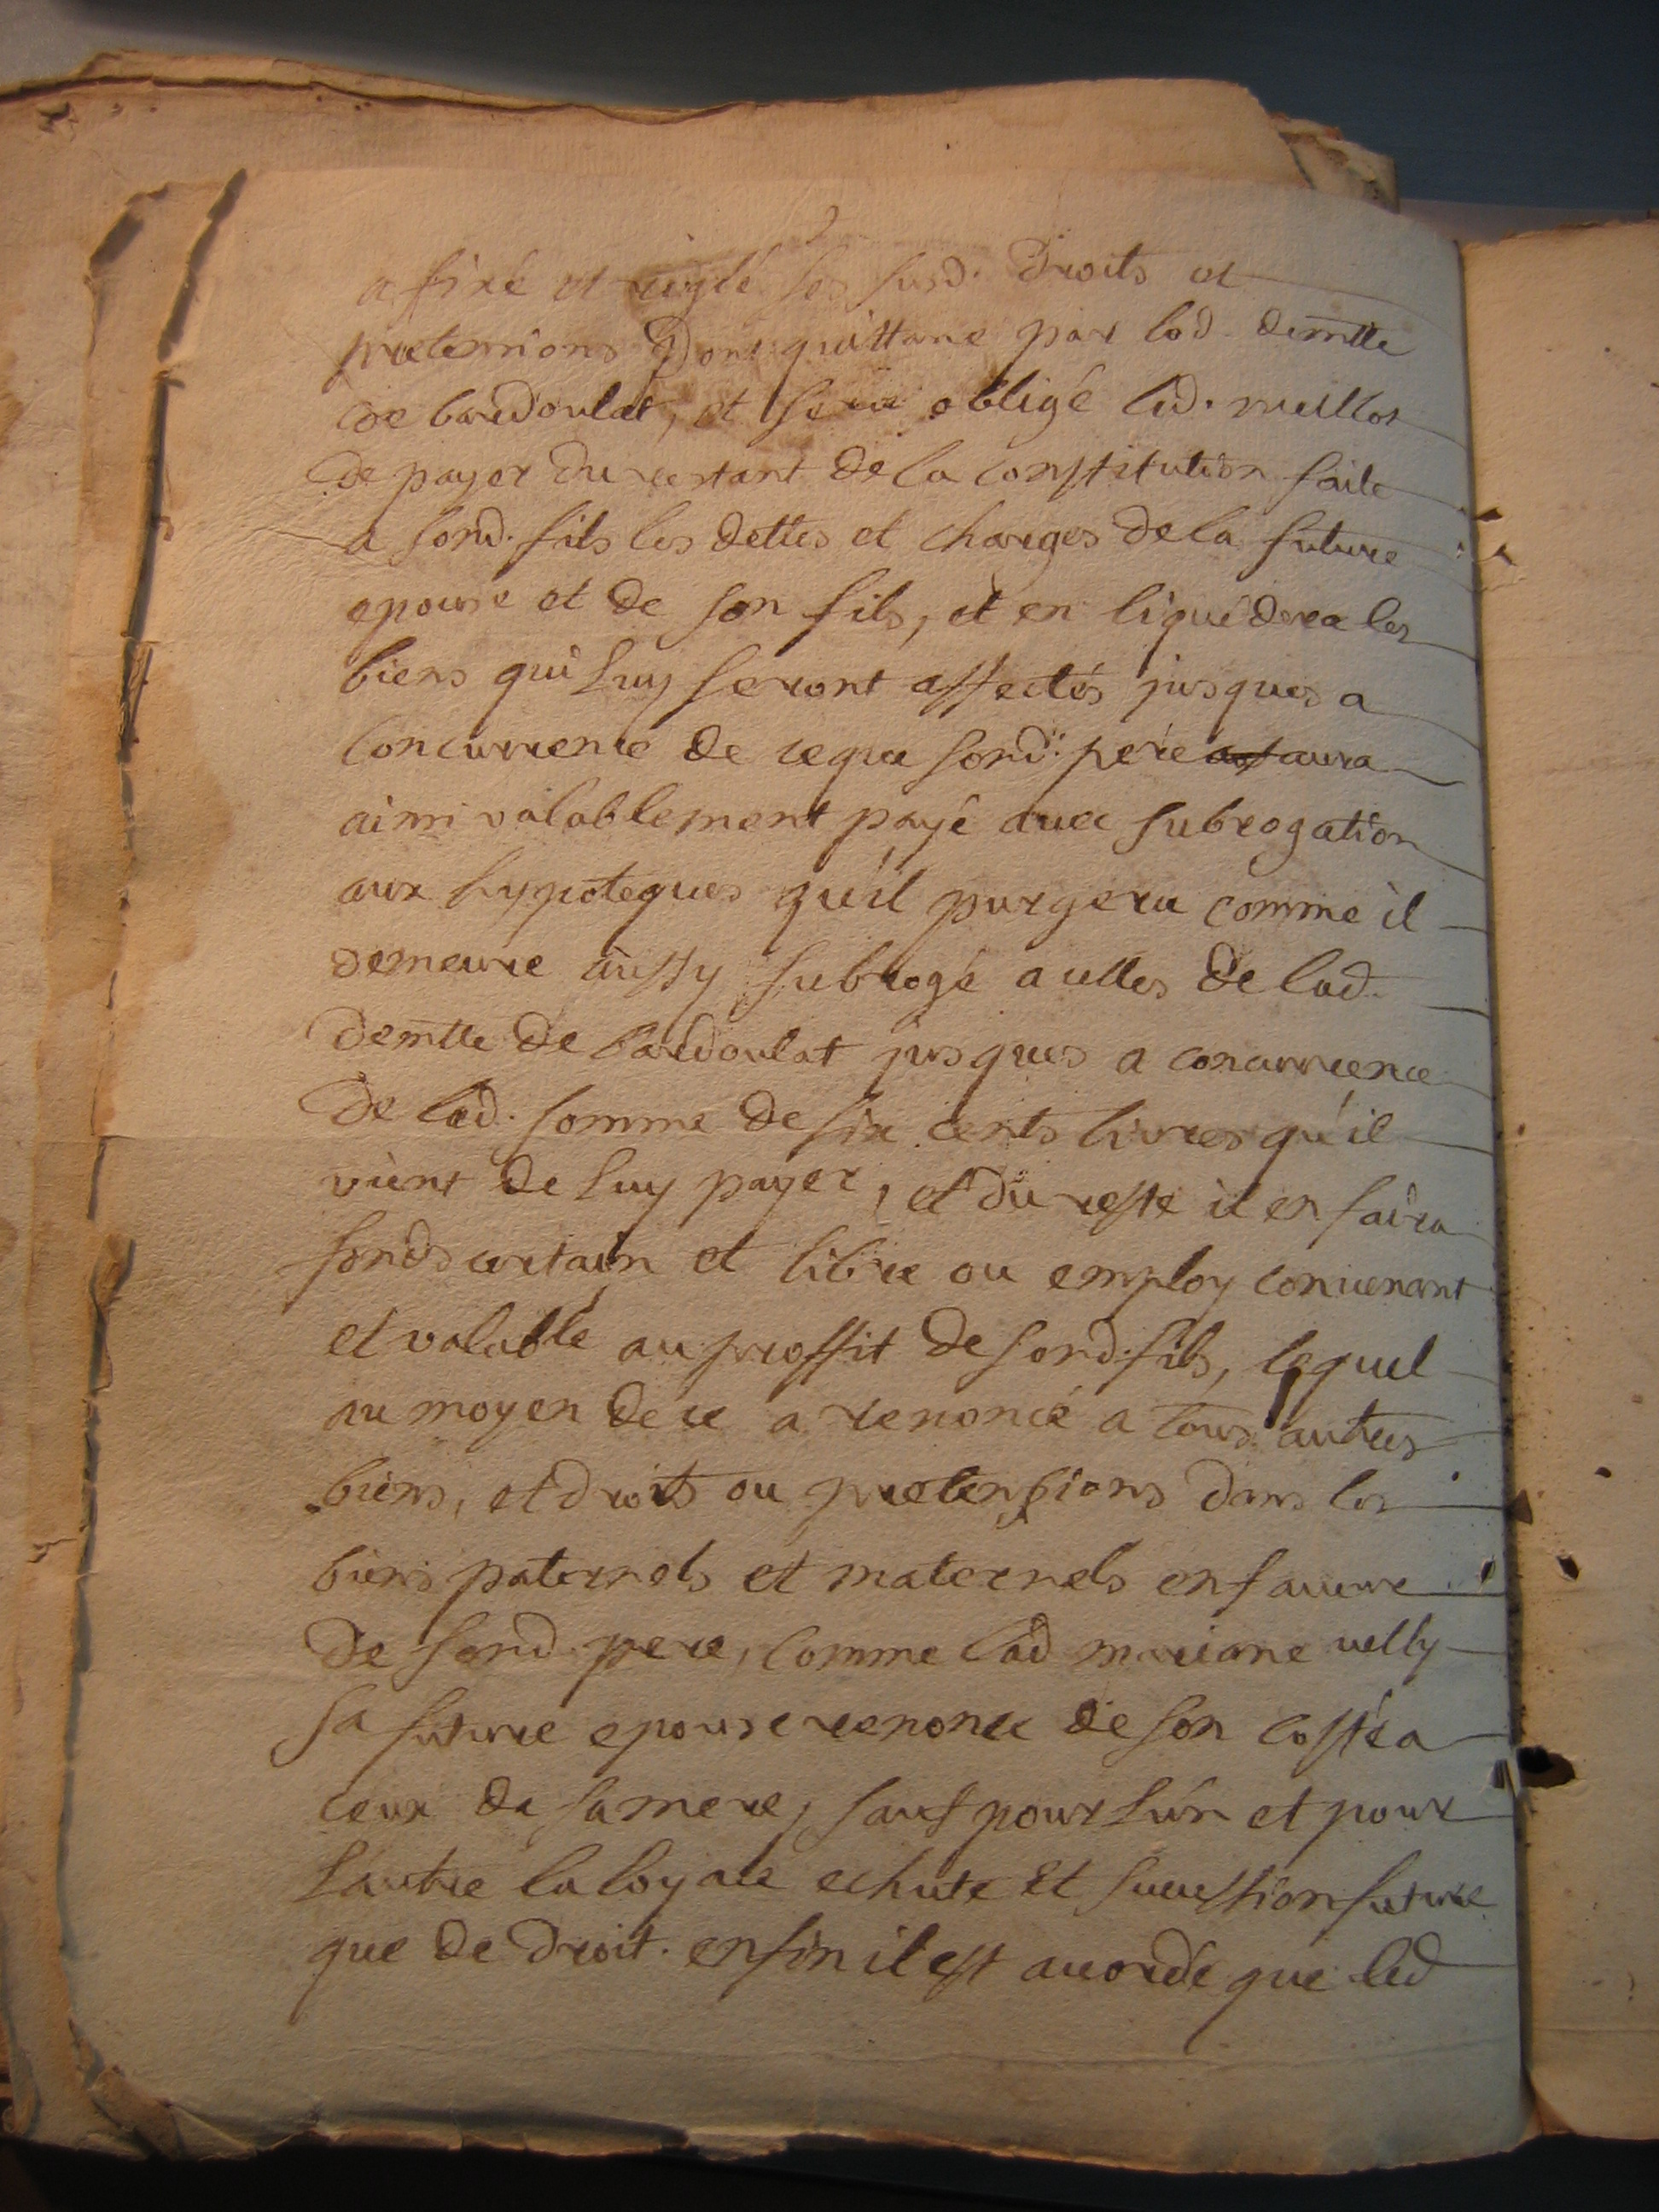 a fixé et reiglé les susd. Droits et
pretensions Dont quittance par lad. demlle
de bardoulat, et sera obligé led. meillot
de payer du restant de la constitution faite
a sond. fils les dettes et charges de la future
epouse et de son fils, et en liquidera les
biens qui luy seront affectés jusques a
concurrence de ce que sond. pere aura
ainsi valablement payé avec subrogation
aux hypoteques qu'il purgera comme il
demeure aussy subrogé a celles de lad.
demlle de bardoulat jusques a concurrence
de lad. somme de six cents livres qu'il
vient de luy payer, et du reste il en faira
fonds certain et libre ou employ convenant
et valable au proffit de sond. fils, lequel
au moyen de ce a renoncé a tous autres
biens, et droits ou pretensions dans les
biens paternels et maternels en faveur
de sond. pere, comme lad mariane velly
sa future epouse renonce de son costé a
ceux de sa mere, sauf pour l'un et pour
l'autre la loyale echute et succession future
que de droit. enfin il est acordé que led